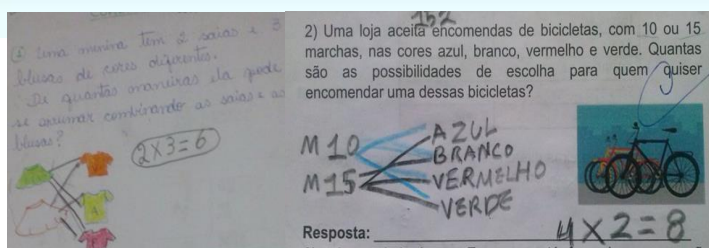 ① Uma menina tem 2 saias e 3
blusas de cores diferentes.
De quantas maneiras ela pode
se arrumar combinando as saias e as
blusas?
2X3=6
152
2) Uma loja aceita encomendas de bicicletas, com 10 ou 15
marchas, nas cores azul, branco, vermelho e verde. Quantas
são as possibilidades de escolha para quem quiser
encomendar uma dessas bicicletas?
M10
M15
AZUL
BRANCO
VERMELHO
VERDE
Resposta: 4X2=8